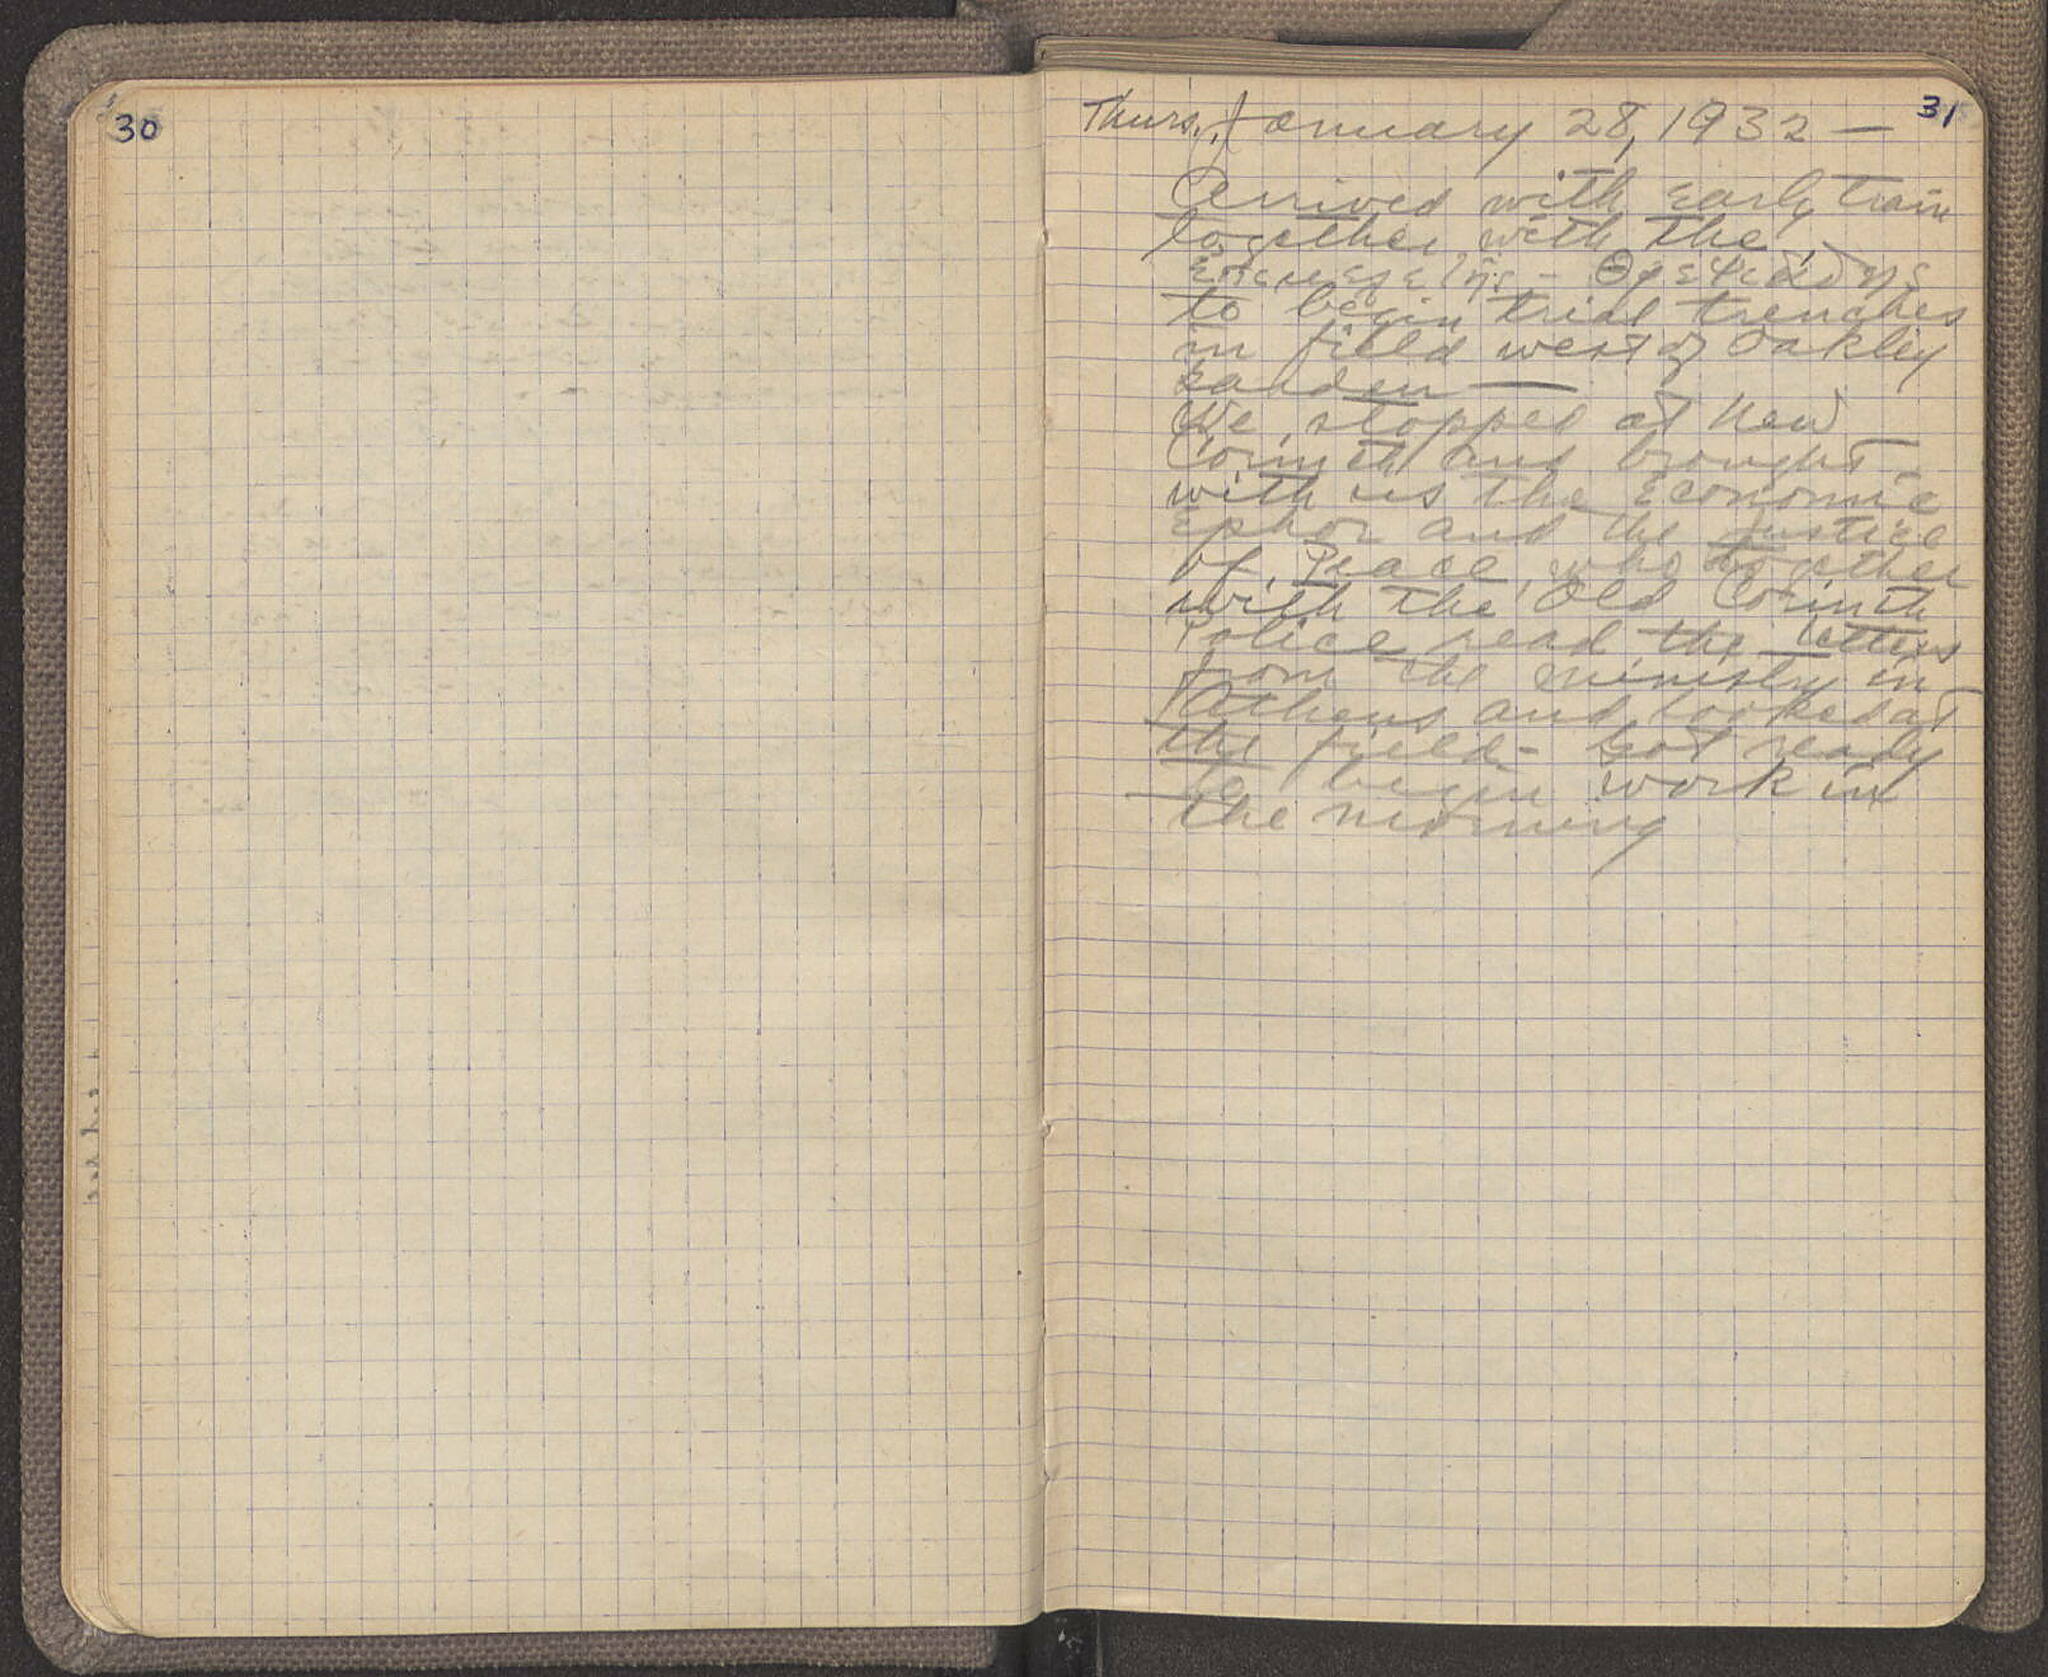 30
31
Thurs., January 28, 1932 —
Arrived with early train
together with the
to begin trial trenches
in field west of Oakley
We stopped at New
Corinth and brought
with us the Economic
Ephor and the Justice
of Peace, who together
with the Old Corinth
Police read the letters
from the ministry in
Athens and looked at
the field - Got ready
to begin work in
the morning